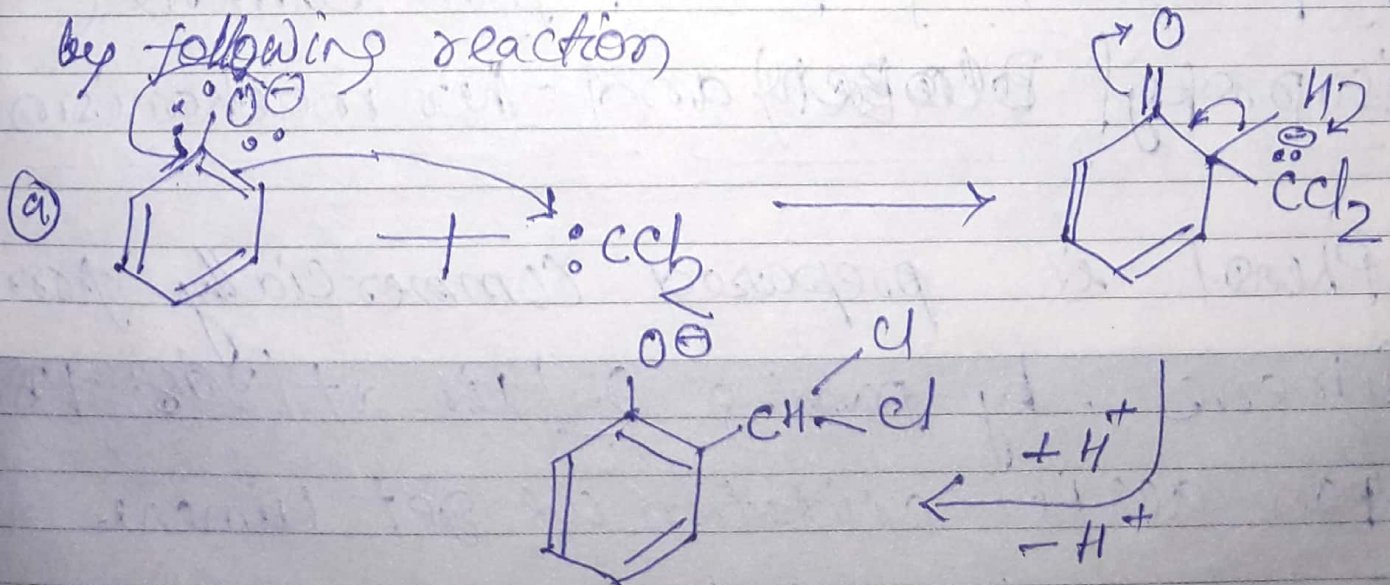 by following reaction
O⊖
O
H
(a) + :CCl2 ⊖ CCl2
O⊖ Cl
CH Cl
+ H+
- H+